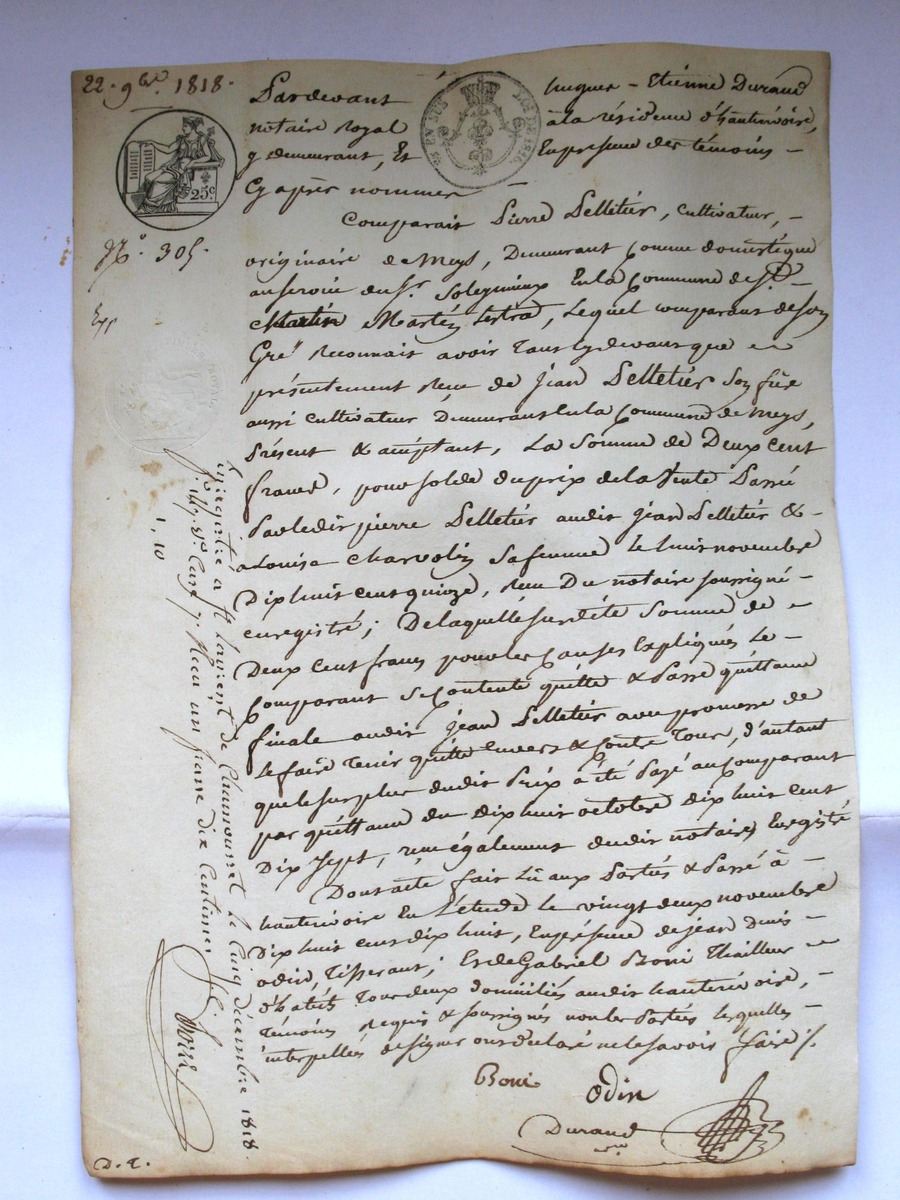 22. 9bre. 1818.
Pardevant hugues - Etiénne Durand
notaire royal à la résidence d'hauterivoire,
y demeurant, Et En présence des témoins -
Cy après nommés -
25c
LOI DE 1816.
N° 305.
Exp
Comparait Pierre Pelletiér, cultivateur, -
originaire de Meys, Demeurant comme domestique
au service du Sr. Soleymieux En la Commune de St. -
Martin Lestra, Lequel comparant de son
Gré Reconnait avoir tant cy devant que
présentement Reçu de jean Pelletiér son frère
aussi cultivateur Demeurant En la Commune de Meys,
Présent & acceptant, La Somme de Deux Cent
francs, pour solde du prix de la Vente Passée
Par ledit pierre Pelletiér audit jean Pelletiér &
a Louise Charvolin sa femme le huit novembre
Dix huit cent quinze, Reçu Du notaire soussigné -
enregistré; De laquelle susdite Somme de
Deux Cent francs pour les Causes Expliquées Le -
Comparant se Contente quitte & Passe quittance
finale audit jean Pelletiér avec promesse de
Le faire Tenir quitte Envers & Contre Tous, d'autant
que le surplus dudit Prix a été Payé au Comparant
par quittance du Dix huit octobre Dix huit Cent
Dix Sept, reçue également dudit notaire, Enregistré
Dont acte fait Lu aux Parties & Passé à -
hauterivoire En L'étude le vingt deux novembre
Dix huit cent dix huit, En présence de jean Denis
odin, Tisserant, Et de Gabriel Boni Thailleur
d'habits Tous deux domiciliés audit hauterivoire, -
Témoins Requis & soussignés non les Parties lesquelles -
interpellées de signer ont déclaré ne le savoir faire /.
Boni odin
Durand
Enregistré a St Laurent de Chamousset le Cinq décembre 1818
Reçu un franc dix Centimes
1, 10
D. E.